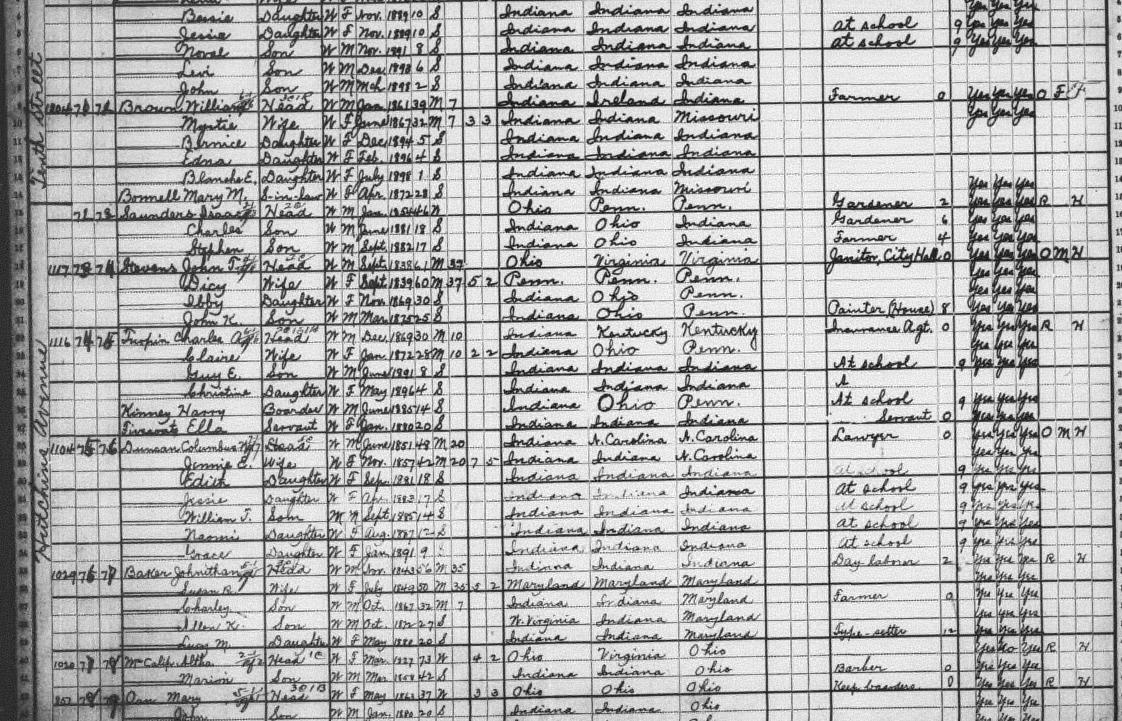 Bessie Daughter W F Nov. 1889 10 S Indiana Indiana Indiana
Jessie Daughter W F Nov. 1889 10 S Indiana Indiana Indiana At school 9 Yes Yes Yes
Son W M Nov. 1891 8 S Indiana Indiana Indiana at school 9 Yes Yes Yes
Levi Son W M Dec. S Indiana Indiana Indiana
John Son W M Mch. 1898 2 S Indiana Indiana Indiana
Brown William Head W M Jan. 1861 39 M 7 Indiana Ireland Indiana Farmer 0 Yes Yes Yes O F
Myrtie Wife W F June 1867 32 M 7 3 3 Indiana Indiana Missouri Yes Yes Yes
Bernice Daughter W F Dec. 1894 5 S Indiana Indiana Indiana
Edna Daughter W F Feb. 1896 4 S Indiana Indiana Indiana
Blanche E. Daughter W F July 1898 1 S Indiana Indiana Indiana
Bonnell Mary M. S-in-law W F Apr. 1872 28 S Indiana Indiana Missouri Yes Yes Yes
Saunders Isaac Head W M Jan. 46 W Ohio Penn. Penn. Gardener 2 Yes Yes Yes R H
Charles Son W M June 1881 18 S Indiana Ohio Indiana Gardener 6 Yes Yes Yes
Stephen Son W M Sept. 1882 17 S Indiana Ohio Indiana Farmer 4 Yes Yes Yes
1117 Stevens John T. Head W M Sept. 1838 61 M 37 Ohio Virginia Virginia Janitor, City Hall 0 Yes Yes Yes O M H
Dicy Wife W F Sept. 1839 60 M 37 5 2 Penn. Penn. Penn. Yes Yes Yes
Ibby Daughter W F Nov. 1869 30 S Indiana Ohio Penn. Yes Yes Yes
John K. Son W M Mar. 1875 25 S Indiana Ohio Penn. Painter (House) 8 Yes Yes Yes
1116 Charles A. Head W M Dec. 1869 30 M 10 Indiana Kentucky Kentucky Insurance Agt. 0 Yes Yes Yes R H
Claire Wife W F Jan. 1872 28 M 10 2 2 Indiana Ohio Penn. Yes Yes Yes
Guy E. Son W M June 1891 8 S Indiana Indiana Indiana At school 9 Yes Yes Yes
Christine Daughter W F May 1896 4 S Indiana Indiana Indiana A
Kinney Harry Boarder W M June 1885 14 S Indiana Ohio Penn. At school 9 Yes Yes Yes
Ella Servant W F Jan. 1880 20 S Indiana Indiana Indiana Servant 0 Yes Yes Yes
1104 Columbus Head W M June 1851 48 M 20 Indiana N. Carolina N. Carolina Lawyer 0 Yes Yes Yes O M H
Jennie E. Wife W F Nov. 1857 42 M 20 7 5 Indiana Indiana N. Carolina Yes Yes Yes
Edith Daughter W F Sep. 1881 18 S Indiana Indiana Indiana At school 9 Yes Yes Yes
Jessie Daughter W F Apr. 1883 17 S Indiana Indiana Indiana At school 9 Yes Yes Yes
William T. Son W M Sept. 1885 14 S Indiana Indiana Indiana At school 9 Yes Yes Yes
Naomi Daughter W F Aug. 1887 12 S Indiana Indiana Indiana At school 9 Yes Yes Yes
Grace Daughter W F Jan. 1891 9 S Indiana Indiana Indiana At school 9 Yes Yes Yes
1029 Baker Johnithan Head W M Nov. 1843 56 M 35 Indiana Indiana Indiana Day laborer 2 Yes Yes Yes R H
Susan R. Wife W F July 1849 50 M 35 5 2 Maryland Maryland Maryland Yes Yes Yes
Charley Son W M Oct. 1867 32 M 7 Indiana Indiana Maryland Farmer 0 Yes Yes Yes
Allen K. Son W M Oct. 1872 27 S W. Virginia Indiana Maryland Yes Yes Yes
Lucy M. Daughter W F May 1880 20 S Indiana Indiana Maryland Type-setter 12 Yes Yes Yes
1020 Altha Head W F Mar. 1827 73 W 4 2 Ohio Virginia Ohio Yes No Yes R H
Marion Son W M Mar. 42 S Indiana Indiana Ohio Barber 0 Yes Yes Yes
Mary Head W F May 1863 37 W 3 3 Ohio Ohio Ohio Keep boarders 0 Yes Yes Yes R H
John Son W M Jan. 1880 20 S Indiana Indiana Ohio
Tenth Street
Hutchins Avenue